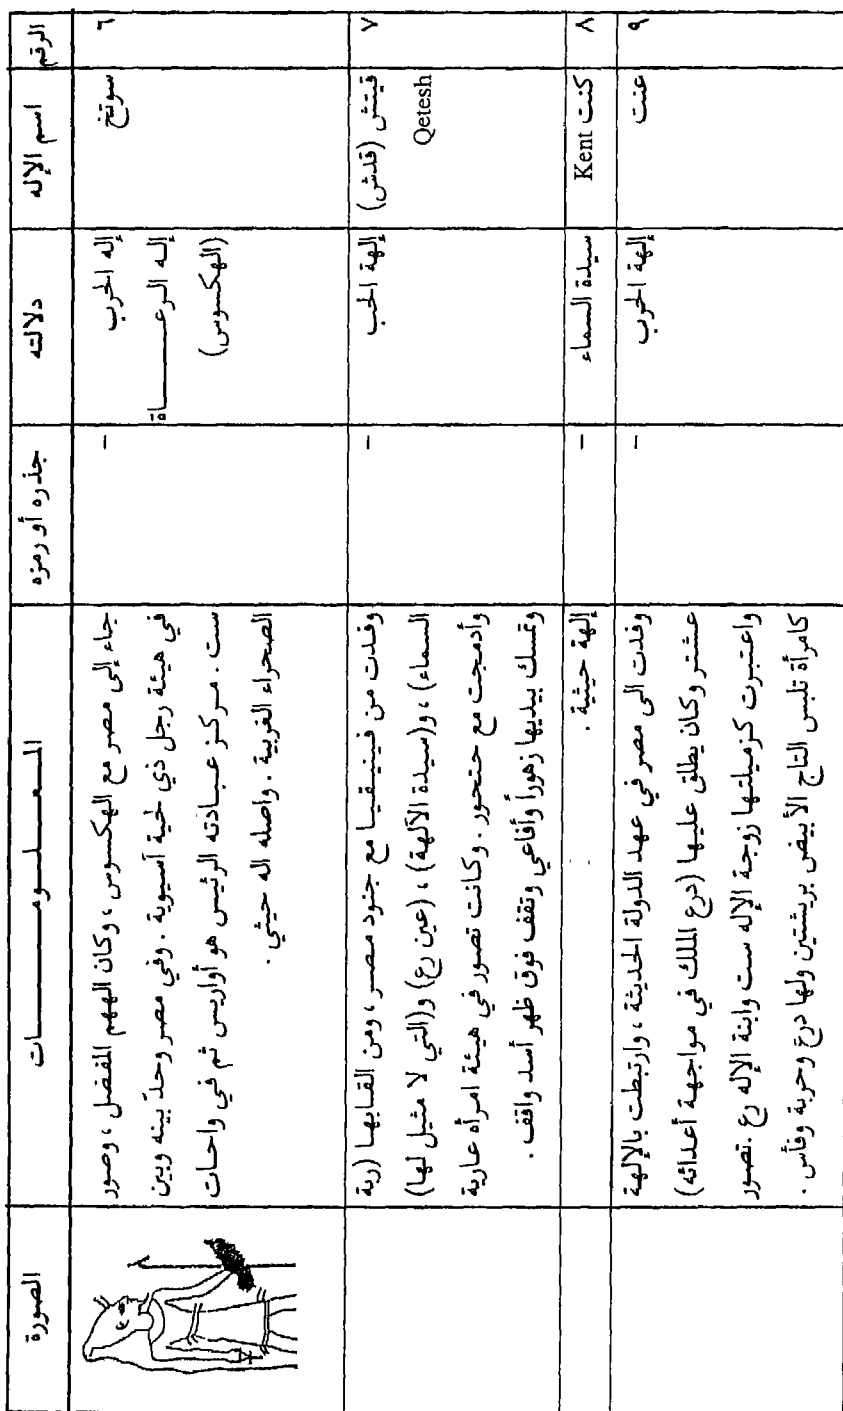 الرقم
اسم الإله
دلالته
جذره أو رمزه
المعلومات
الصورة
٦
سوتخ
إله الحرب
إله الرعاة
(الهكسوس)
–
جاء إلى مصر مع الهكسوس ، وكان الههم المفضل ، وصور
في هيئة رجل ذي لحية آسيوية . وفي مصر وحدّ بينه وبين
ست . مركز عبادته الرئيس هو أواريس ثم في واحات
الصحراء الغربية . واصله اله حيثي .
٧
قيتش (قدش)
Qetesh
إلهة الحب
–
وفدت من فينيقيا مع جنود مصر ، ومن القابها (ربة
السماء) ، و(سيدة الآلهة) ، (عين رع) و(التي لا مثيل لها)
وأدمجت مع حتحور . وكانت تصور في هيئة امرأة عارية
وتمسك بيديها زهوراً وأفاعي وتقف فوق ظهر أسد واقف .
٨
كنت Kent
سيدة السماء
–
إلهة حيثية .
٩
عنت
إلهة الحرب
–
وفدت الى مصر في عهد الدولة الحديثة ، وارتبطت بالإلهة
عشتر وكان يطلق عليها (درع الملك في مواجهة أعدائه)
واعتبرت كزميلتها زوجة الإله ست وابنة الإله رع .تصور
كامرأة تلبس التاج الأبيض بريشتين ولها درع وحربة وفأس .